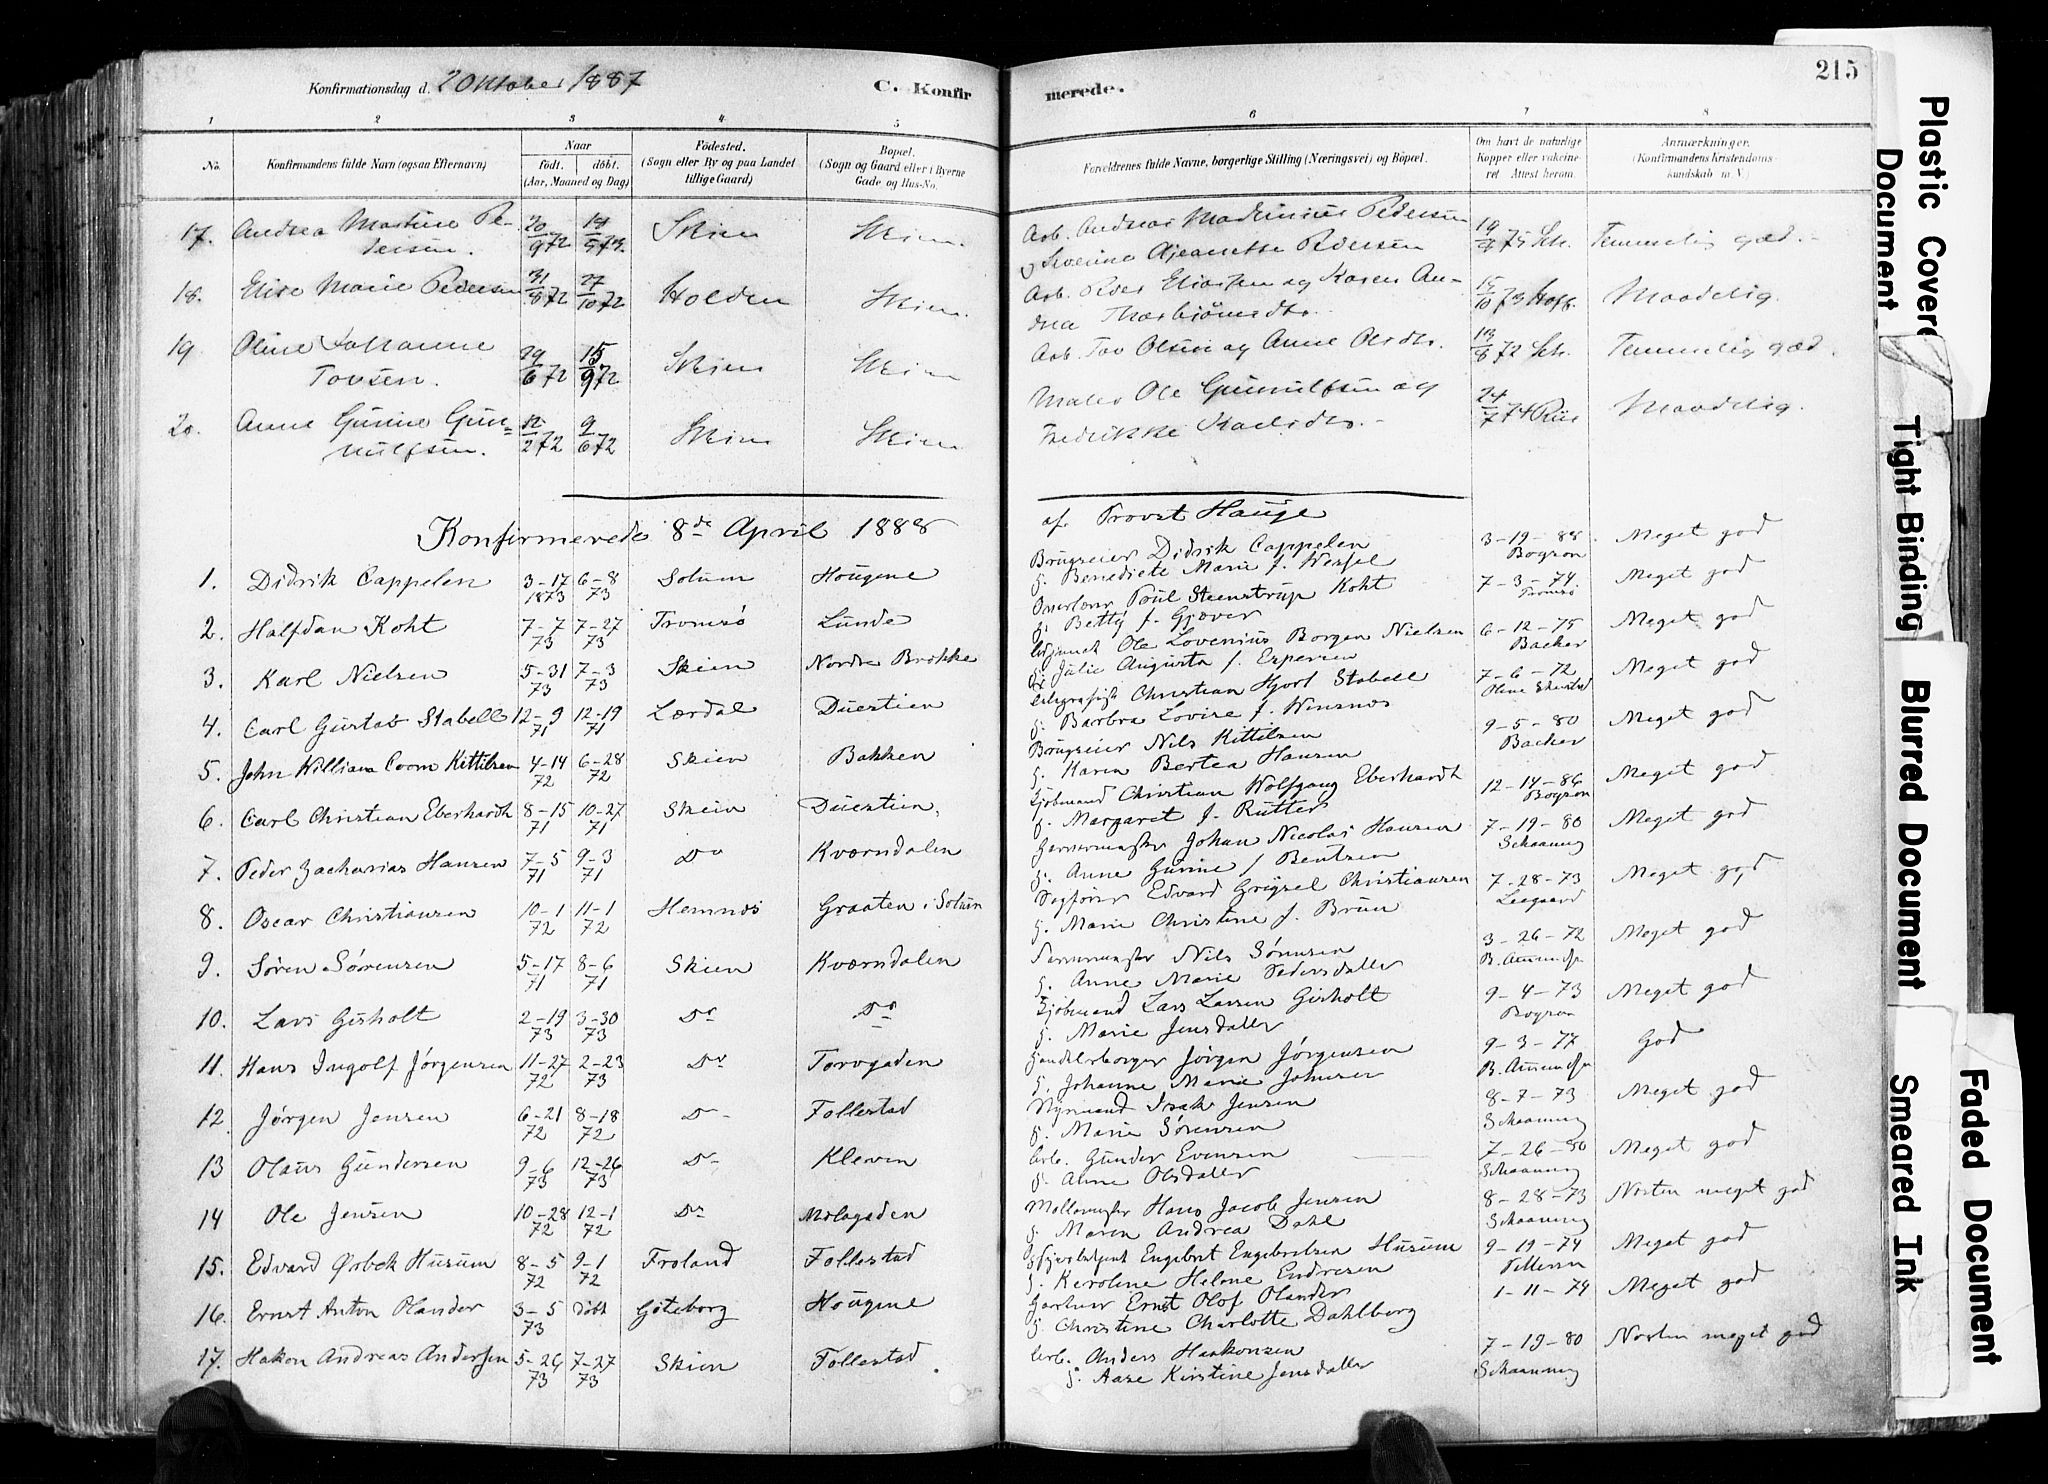 Konfirmationsdag d. 2 Oktober 1887 C. Konfirmerede. 215
1 2 3 4 5 6 7 8
No. Konfirmandens fulde Navn (ogsaa Efternavn) Naar født. døbt. (Aar, Maaned og Dag) Fødested. (Sogn eller By og paa Landet tillige Gaard) Bopæl. (Sogn og Gaard eller i Byerne Gade og Hus-No. Forældrenes fulde Navne, borgerlige Stilling (Næringsvei) og Bopæl. Om havt de naturlige Kopper eller vakcineret Attest herom. Anmærkninger. (Konfirmandens Kristendomskundskab m. V.)
17. Andrea Martine Pedersen. 20/9 72 Skien Skien. Arb. Andreas Pedersen Temmelig god.
18. Elise Marie Pedersen 31/8 72 27/10 72 Holden Skien. Arb. Peder Eliassen og Karen Andrea 15/10 73 Maadelig.
19 Oline Johanne Tovsen. 29/6 72 15/9 72 Skien Skien Arb. Tov Olsen og Anne Olsdtr. 13/8 72 Sch. Temmelig god.
20. Anne Gunine Gunnulfsen. 12/2 72 9/6 72 Skien Skien Maler Ole Gunnulfsen og Fredrikke 24/7 74 Riis Maadelig.
Konfirmerede 8de April 1888 af Provst Hauge
1. Didrik Cappelen 3-17 1873 6-8 73 Solum Hougene Brugseier Didrik Cappelen H. Benedicte Marie f. Wessel 3-19-88 Bogron Meget god
2. Halfdan Koht 7-7 73 7-27 73 Tromsö Lunde Overlærer Poul Steenstrup Koht H. Betty f. Gjæver 7-3-74 Tromsö Meget god
3. Karl Nielsen 5-31 73 7-3 73 Skien Nordre Brekke Adjunct Ole Lovenius Borgen Nielsen H. Julie Augusta f. Espersen 6-12-75 Backer Meget god
4. Carl Gustav Stabell 12-9 71 12-19 71 Lærdal Duestien Christian Hjort Stabell H. Barbra Lovise f. Wensnes 7-6-72 Meget god
5. John William Coom Kittilsen 4-14 72 6-28 72 Skien Bakken Brugseier Nils Kittilsen H. Karen Bertea Hansen 9-5-80 Backer Meget god
6. Carl Christian Eberhardt 8-15 71 10-27 71 Skien Duestien. Kjøbmand Christian Wolfgang Eberhardt H. Margaret f. Rutter 12-14-86 Bogron Meget god
7. Peder Zacharias Hansen 7-5 71 9-3 71 Do Kværndalen Garvermester Johan Nicolai Hansen H. Anne Gurine f Bentzen 7-19-80 Schaaning Meget god
8. Oscar Christiansen 10-1 72 11-1 72 Hemnes Graaten i Solum Sagfører Edvard Grigsel Christiansen H. Marie Christine f. Bruun 7-28-73 Leegaard Meget god
9. Søren Sørensen 5-17 71 8-6 71 Skien Kværndalen Nils Sørensen H. Anne Marie Pedersdatter 3-26-72 B. Amundsen Meget god
10. Lars Gisholt 2-19 73 3-30 73 Do Do Kjøbmand Lars Larsen Gisholt H. Marie Jensdatter 9-4-73 Bogron Meget god
11. Hans Ingolf Jørgensen 11-27 72 2-23 73 Do Torvgaden Handelsborger Jørgen Jørgensen H. Johanne Marie Johnsen 9-3-77 B. Amundsen God
12. Jørgen Jensen 6-21 72 8-18 72 Do Follestad Isak Jensen H. Marie Sørensen 8-7-73 Schaaning Meget god
13 Olaus Gundersen 9-6 73 12-26 73 Do Kleven Arb. Gunder Evensen H. Anne Olsdatter 7-26-80 Schaaning Meget god
14 Ole Jensen 10-28 72 12-1 72 Do Mælagaden Møllemester Hans Jacob Jensen H. Maren Andrea Dahl 8-28-73 Schaaning Næsten meget god
15. Edvard Ørbek Husum 8-5 72 9-1 72 Froland Follestad Engebret Engebretsen Husum H. Karoline Helene Endresen 9-19-74 Tellefsen Meget god
16. Ernst Anton Olander 3-5 73 døbt Göteborg Hougene Garver Ernst Olof Olander H. Christine Charlotte Dahlberg 1-11-79 Meget god
17. Hakon Andreas Andersen 5-26 73 7-27 73 Skien Follestad Arb. Anders Haakonsen H. Aase Kirstine Jensdatter 7-19-80 Schaaning Næsten meget god
Plastic Covered Document
Tight Binding
Blurred Document
Smeared Ink
Faded Document